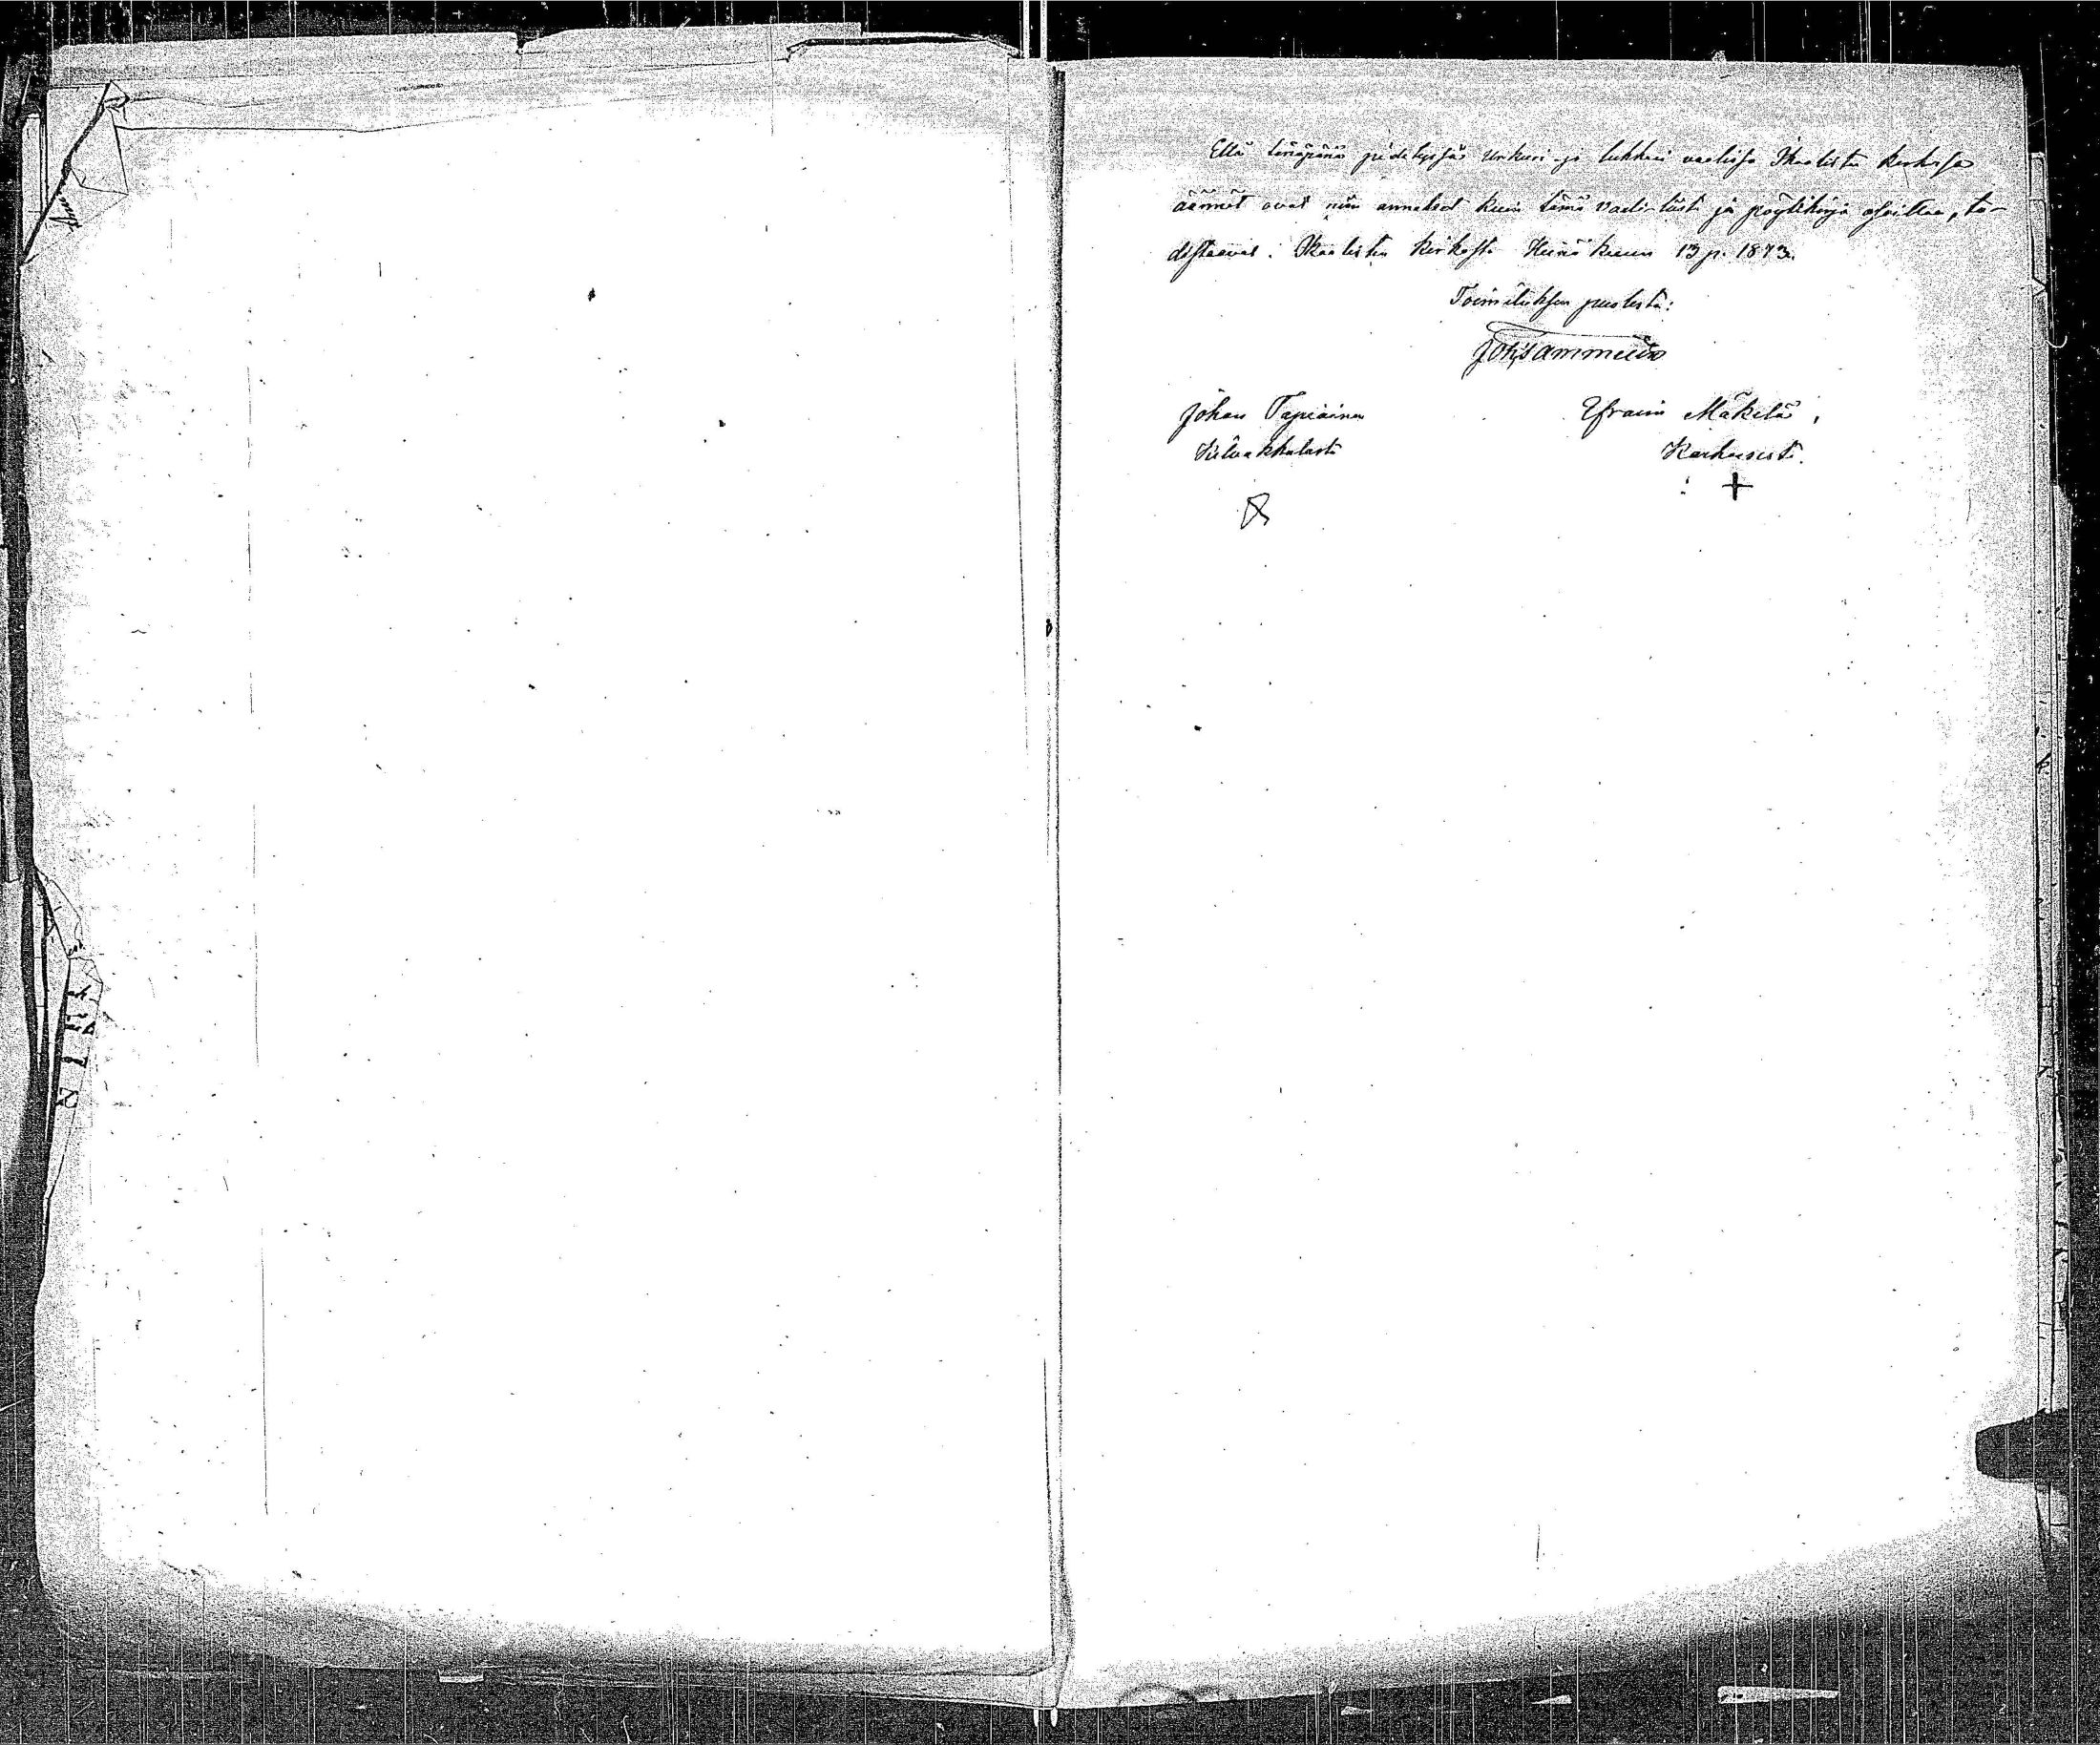 Että tänäpänä pidetyssä Urkuri- ja lukkari vaalissa Ikaalisten kirkossa
äännet ovat niin annetut kuin tämä Vaali-lista ja pöytäkirja osoittaa, to-
distaavat. Ikaalisten kirkosta Heinäkuun 13 p. 1873.
Toimituksen puolesta:
Johan Tapiainen
Efraim Mäkelä,
Karhoisista.